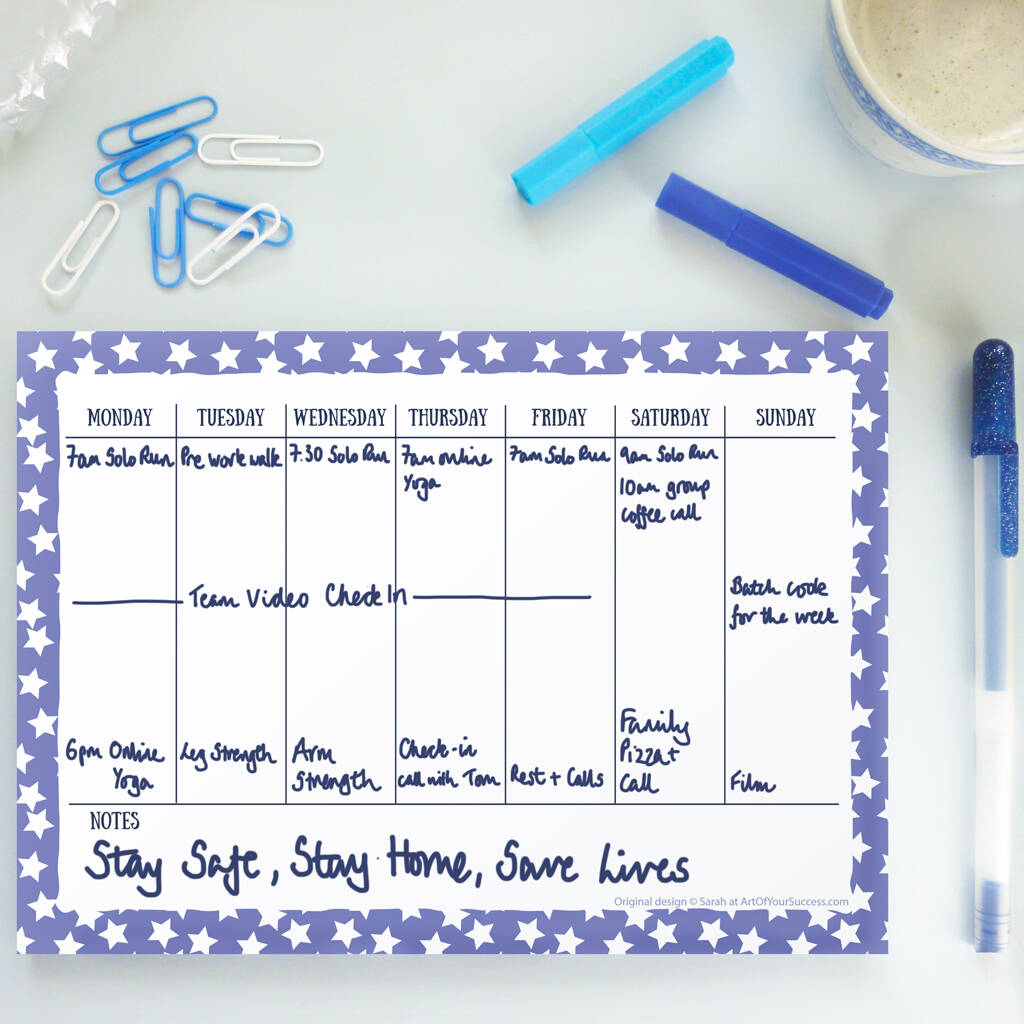 MONDAY TUESDAY WEDNESDAY THURSDAY FRIDAY SATURDAY SUNDAY
7am Solo Run
Pre work walk
7.30 Solo Run
7am online
Yoga
7am Solo Run
9am Solo Run
10am group
coffee call
Team Video Check In
Batch cook
for the week
6pm Online
Yoga
Leg Strength
Arm
Strength
Check-in
call with Tom
Rest + Calls
Family
Pizza +
Call
Film
NOTES
Stay Safe, Stay Home, Save Lives
Original design © Sarah at ArtOfYourSuccess.com